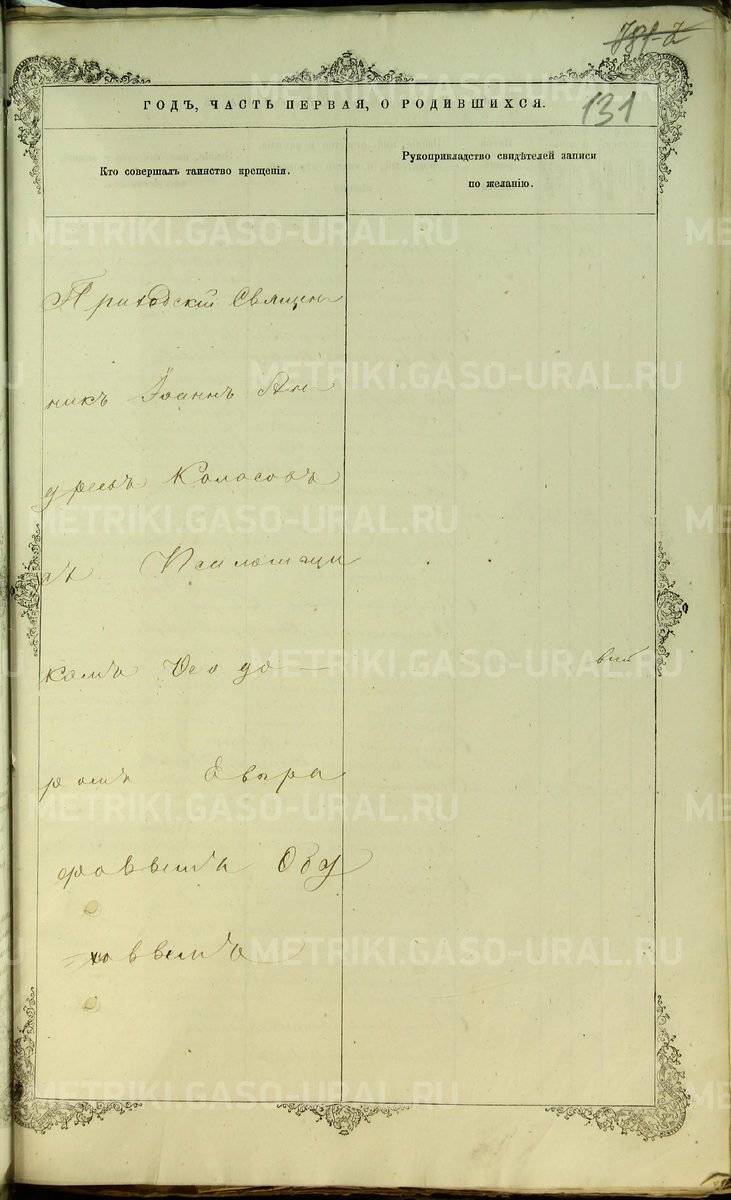 131
ГОДЪ, ЧАСТЬ ПЕРВАЯ, О РОДИВШИХСЯ.
Кто совершалъ таинство крещенія.
Рукоприкладство свидѣтелей записи
по желанію.
Приходскій Священ
никъ Іоаннъ Ан
дреевъ Колосовъ
съ Псаломщи
комъ Ѳеодо
ромъ Евгра
фовымъ Обу
ховымъ
METRIKI.GASO-URAL.RU